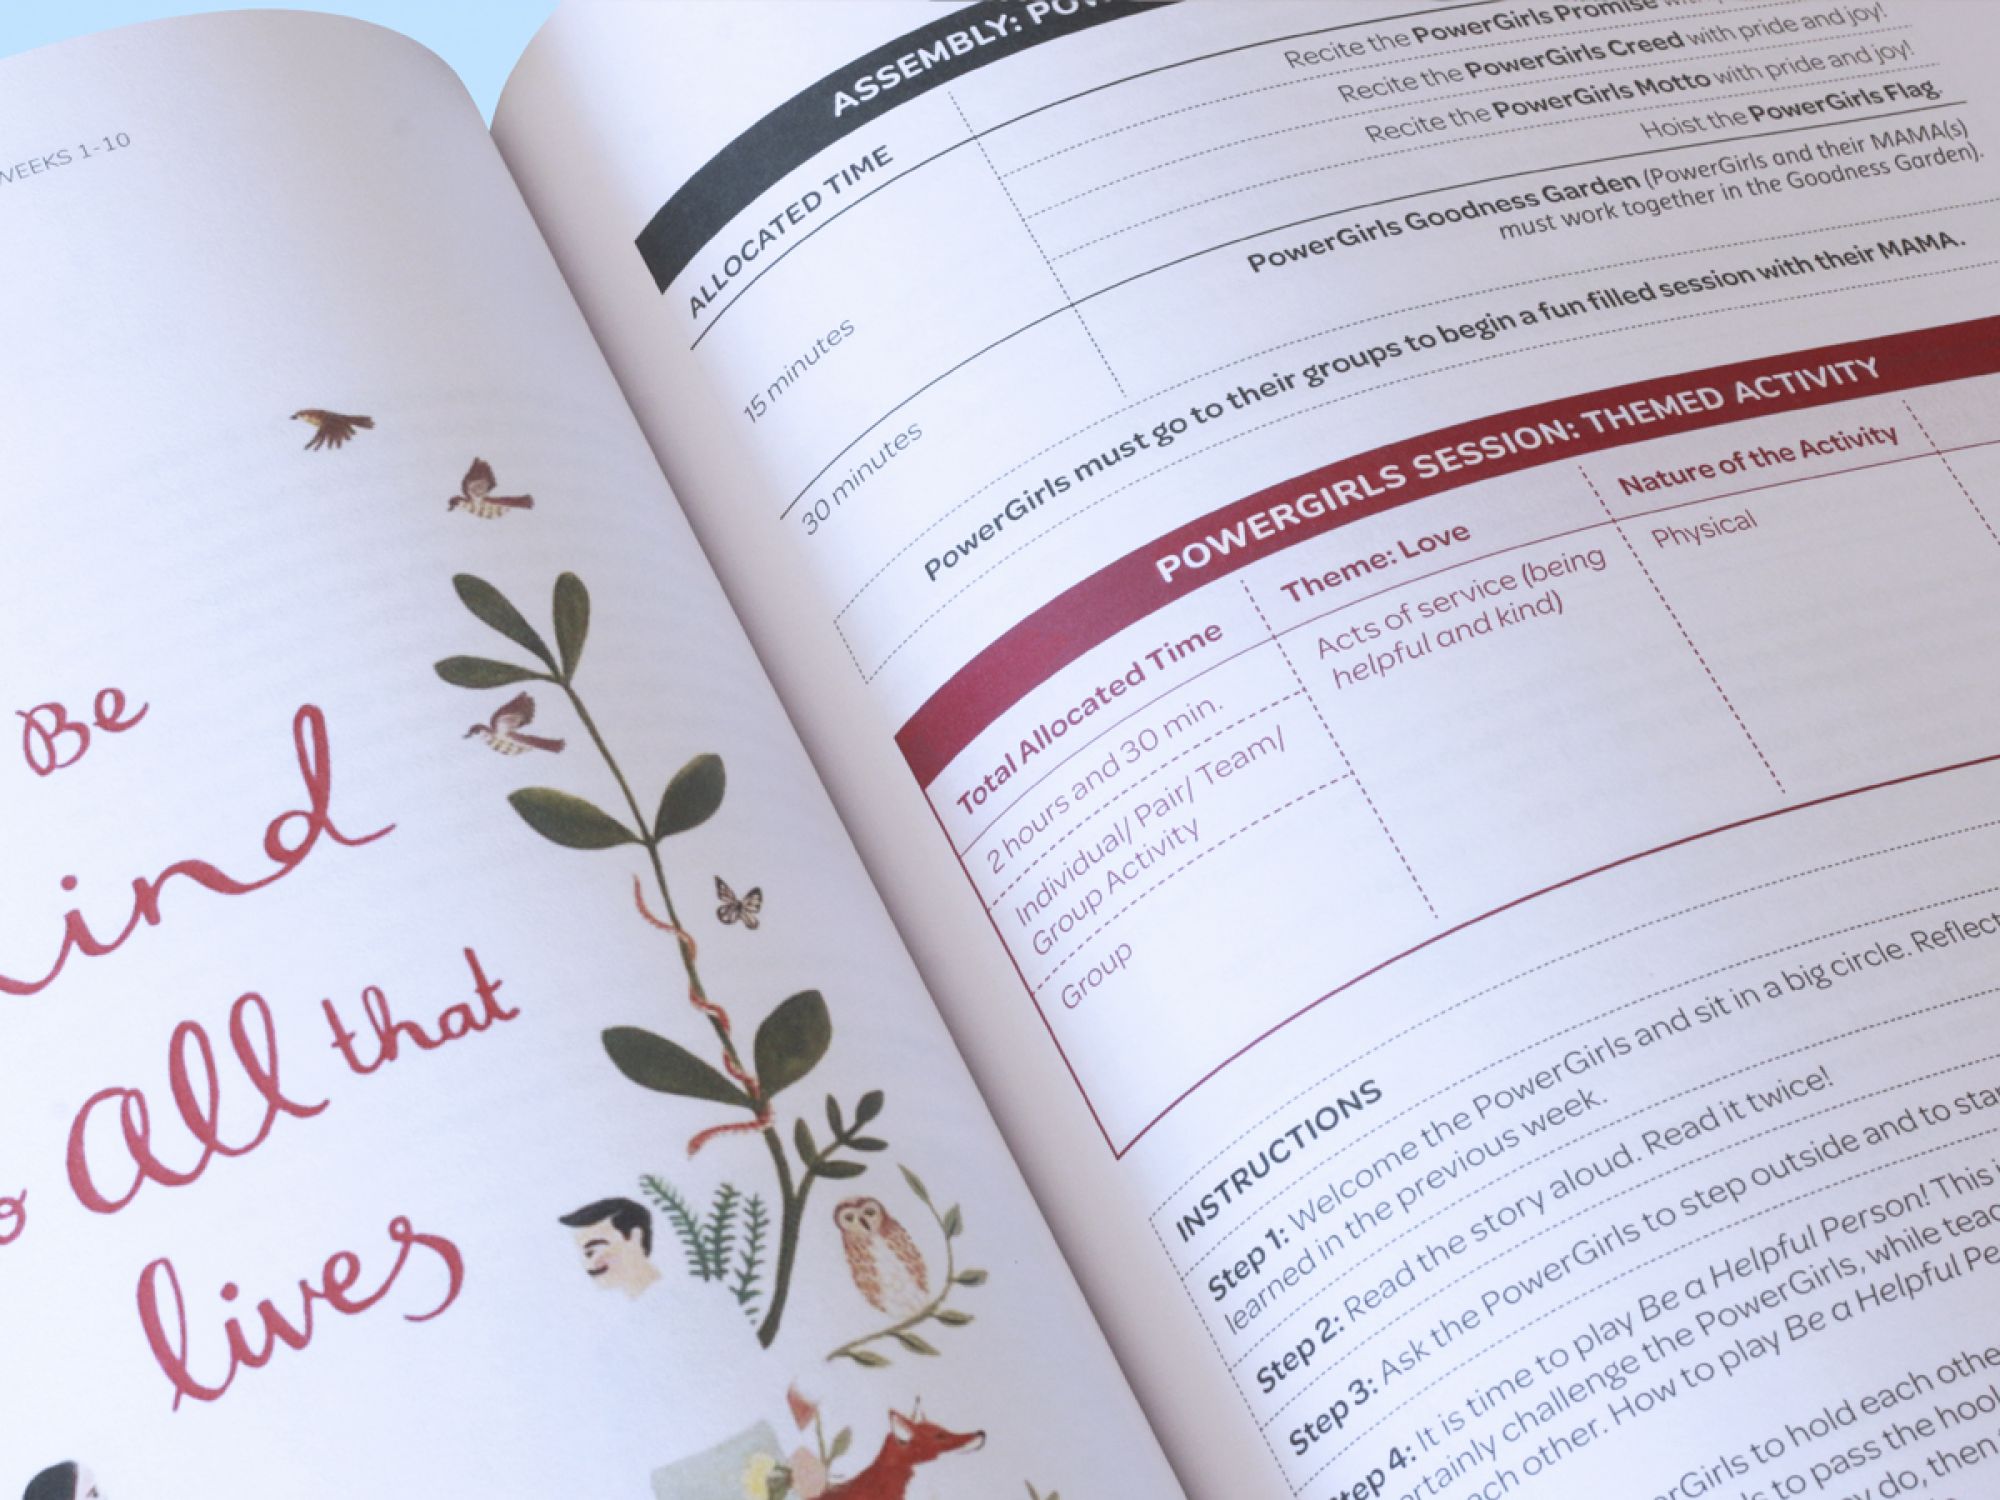 WEEKS 1-10
Be
ind
All that
lives
ASSEMBLY:
Recite the PowerGirls Promise
Recite the PowerGirls Creed with pride and joy!
Recite the PowerGirls Motto with pride and joy!
Hoist the PowerGirls Flag.
ALLOCATED TIME
15 minutes
PowerGirls Goodness Garden (PowerGirls and their MAMA(s)
must work together in the Goodness Garden).
30 minutes
PowerGirls must go to their groups to begin a fun filled session with their MAMA.
POWERGIRLS SESSION: THEMED ACTIVITY
Total Allocated Time
Theme: Love
Nature of the Activity
2 hours and 30 min.
Acts of service (being
helpful and kind)
Physical
Individual/ Pair/ Team/
Group Activity
Group
INSTRUCTIONS
Step 1: Welcome the PowerGirls and sit in a big circle. Reflect
learned in the previous week.
Step 2: Read the story aloud. Read it twice!
Step 3: Ask the PowerGirls to step outside and to
Step 4: It is time to play Be a Helpful Person! This
ertainly challenge the PowerGirls, while
ach other. How to play Be a Helpful
rGirls to hold each
to pass the
do, then